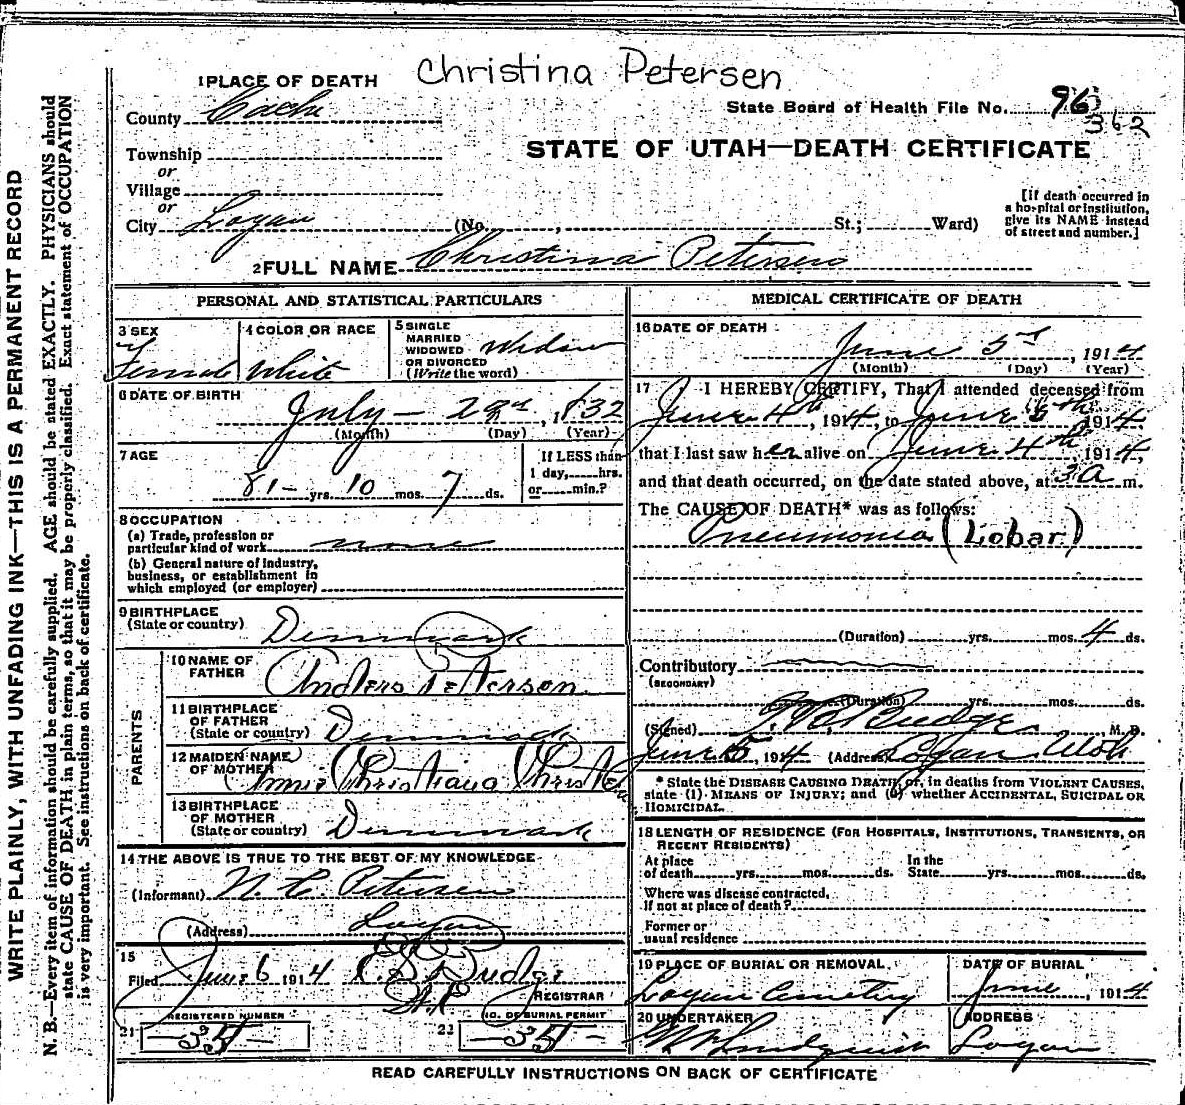 Christina Petersen
1 PLACE OF DEATH
County Cache
State Board of Health File No. 96
362
STATE OF UTAH—DEATH CERTIFICATE
Township
or
Village
or
City Logan (No. , St.; Ward)
[If death occurred in
a hospital or institution,
give its NAME instead
of street and number.]
2 FULL NAME Christina Petersen
PERSONAL AND STATISTICAL PARTICULARS
3 SEX
Female
4 COLOR OR RACE
White
5 SINGLE
MARRIED
WIDOWED
OR DIVORCED
(Write the word)
Widow
6 DATE OF BIRTH
July 28, 1832
(Month) (Day) (Year)
7 AGE
81 yrs. 10 mos. 7 ds.
If LESS than
1 day, hrs.
or min.?
8 OCCUPATION
(a) Trade, profession or
particular kind of work none
(b) General nature of industry,
business, or establishment in
which employed (or employer)
9 BIRTHPLACE
(State or country) Denmark
PARENTS
10 NAME OF
FATHER Anders Petterson
11 BIRTHPLACE
OF FATHER
(State or country) Denmark
12 MAIDEN NAME
OF MOTHER Annie Christiana
13 BIRTHPLACE
OF MOTHER
(State or country) Denmark
14 THE ABOVE IS TRUE TO THE BEST OF MY KNOWLEDGE
(Informant) N. C. Petersen
(Address) Logan
15
Filed June 6 1914 Budge
REGISTRAR
REGISTERED NUMBER
21 —35—
NO. OF BURIAL PERMIT
22 —35—
MEDICAL CERTIFICATE OF DEATH
16 DATE OF DEATH
June 5, 1914
(Month) (Day) (Year)
17 I HEREBY CERTIFY, That I attended deceased from
June 4th, 1914, to June 5th 1914
that I last saw her alive on June 4th, 1914,
and that death occurred, on the date stated above, at 3 a m.
The CAUSE OF DEATH* was as follows:
Pneumonia (Lobar)
(Duration) yrs. mos. 4 ds.
Contributory
(SECONDARY)
(Duration) yrs. mos. ds.
(Signed) Budge, M. D.
June 5, 1914 (Address) Logan Utah
* State the DISEASE CAUSING DEATH, or, in deaths from VIOLENT CAUSES,
state (1) MEANS OF INJURY; and (2) whether ACCIDENTAL, SUICIDAL OR
HOMICIDAL.
18 LENGTH OF RESIDENCE (FOR HOSPITALS, INSTITUTIONS, TRANSIENTS, OR
RECENT RESIDENTS)
At place
of death yrs. mos. ds.
In the
State yrs. mos. ds.
Where was disease contracted,
if not at place of death?
Former or
usual residence
19 PLACE OF BURIAL OR REMOVAL
Logan Cemetery
DATE OF BURIAL
June, 1914
20 UNDERTAKER
Lindquist
ADDRESS
Logan
READ CAREFULLY INSTRUCTIONS ON BACK OF CERTIFICATE
WRITE PLAINLY, WITH UNFADING INK—THIS IS A PERMANENT RECORD
N. B.—Every item of information should be carefully supplied. AGE should be stated EXACTLY. PHYSICIANS should
state CAUSE OF DEATH in plain terms, so that it may be properly classified. Exact statement of OCCUPATION
is very important. See instructions on back of certificate.